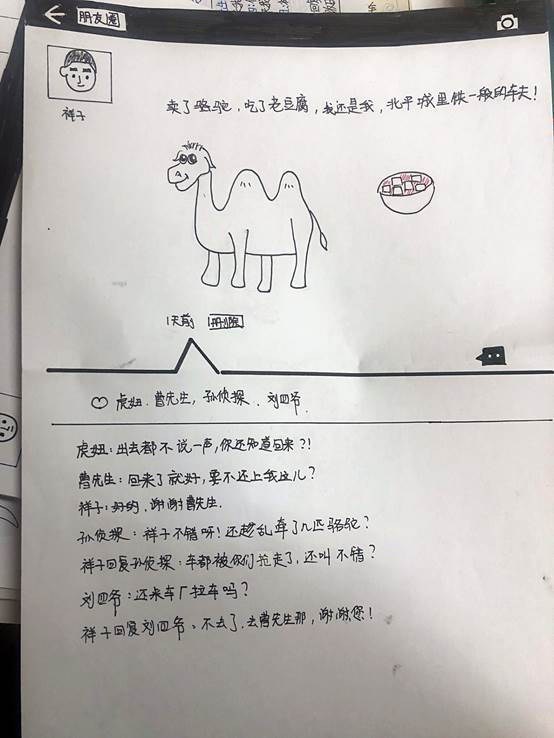 朋友圈
祥子
卖了骆驼，吃了老豆腐，我还是我，北平城里铁一般的车夫！
1天前 删除
虎妞．曹先生，孙侦探．刘四爷
虎妞：出去都不说一声，你还知道回来？！
曹先生：回来了就好，要不还上我这儿？
祥子：好的．谢谢曹先生．
孙侦探：祥子不错呀！还趁乱牵了几匹骆驼？
祥子回复孙侦探：车都被你们抢走了，还叫不错？
刘四爷：还来车厂拉车吗？
祥子回复刘四爷：不去了．去曹先生那，谢谢您！